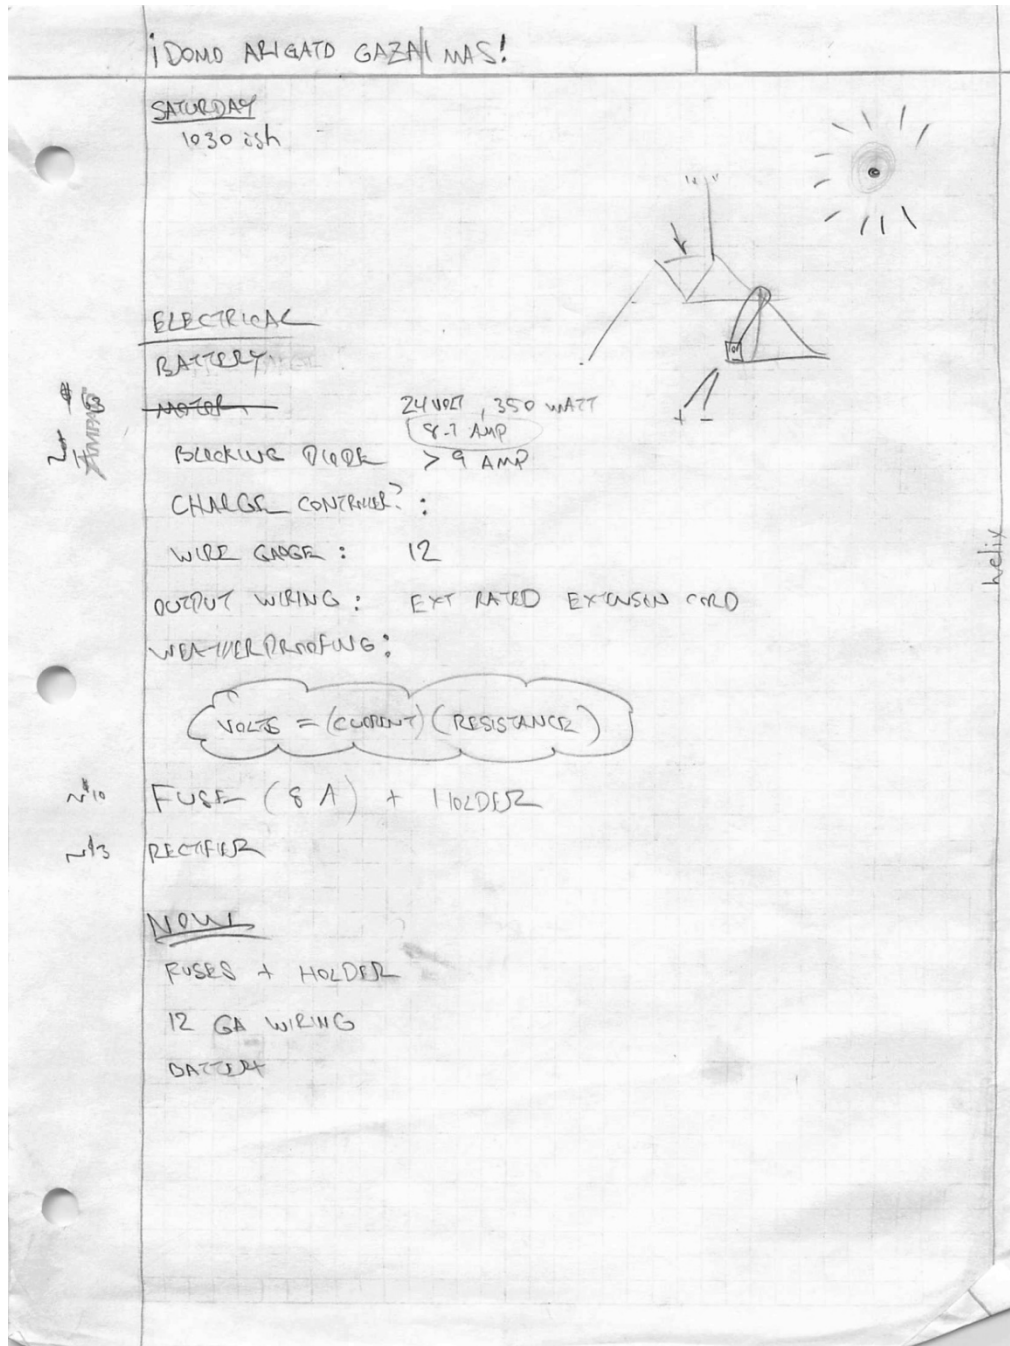 ¡DOMO ARIGATO GAZAI MAS!
SATURDAY
1030 ish
ELECTRICAL
BATTERY
MOTOR 24 VOLT, 350 WATT
8.7 AMP
BLOCKING DIODE > 9 AMP
CHARGE CONTROLLER? :
WIRE GAGE : 12
OUTPUT WIRING : EXT RATED EXTENSION CORD
WEATHERPROOFING :
VOLTS = (CURRENT) (RESISTANCE)
~$10 FUSE (8 A) + HOLDER
~$3 RECTIFIER
NOW
FUSES + HOLDER
12 GA WIRING
BATTERY
+ -
helix